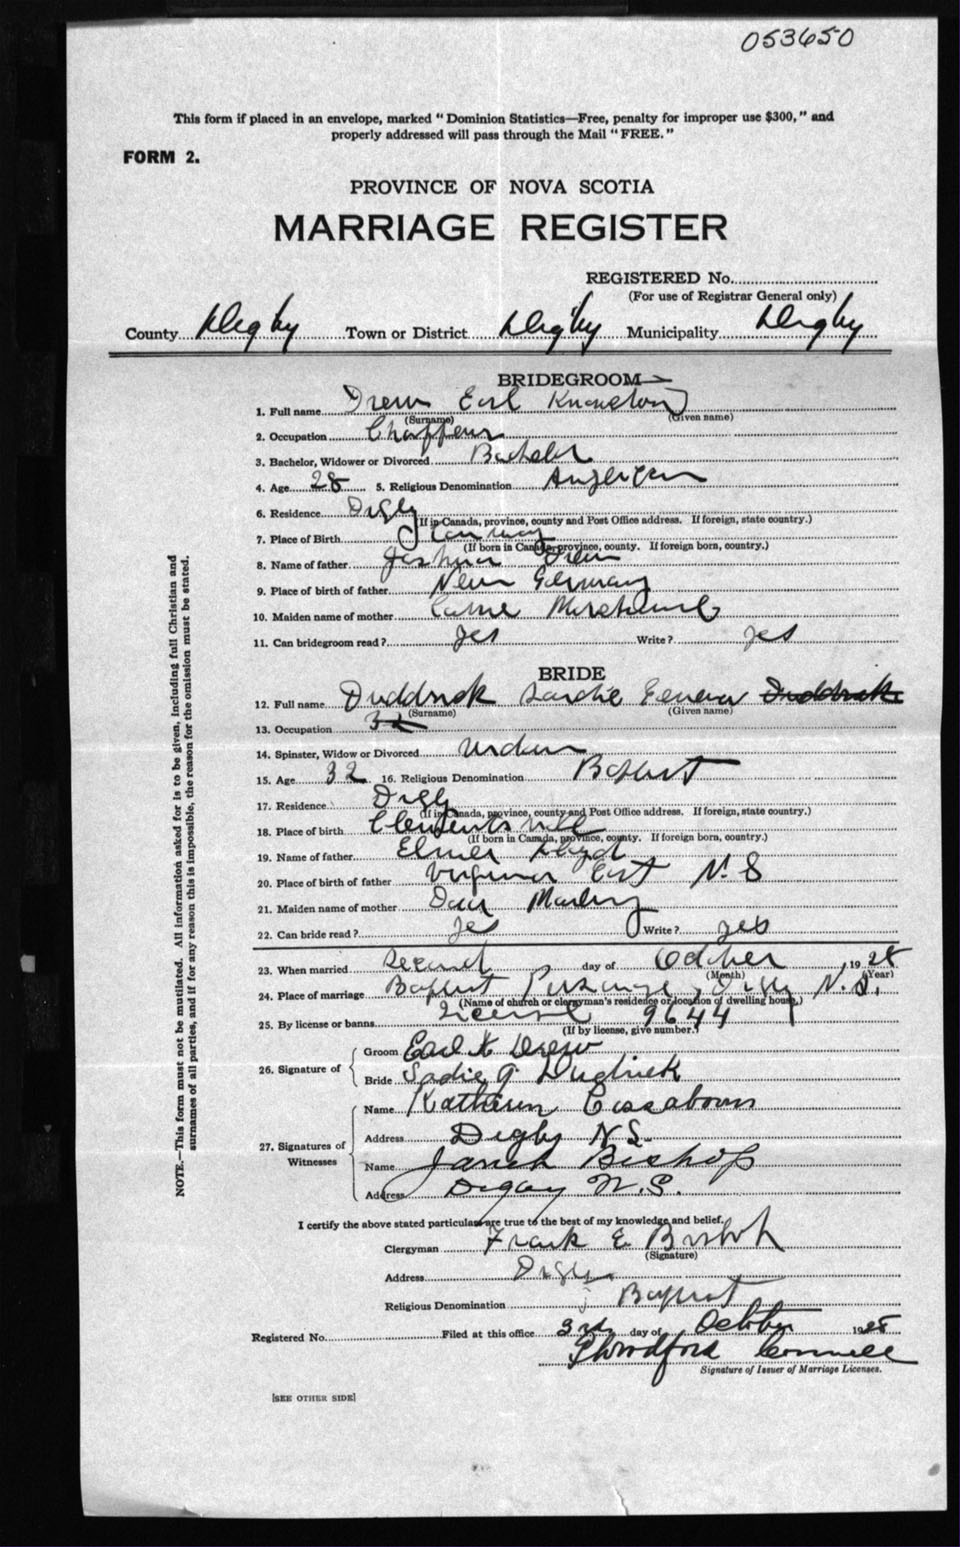 053650
This form if placed in an envelope, marked " Dominion Statistics—Free, penalty for improper use $300," and
properly addressed will pass through the Mail "FREE."
FORM 2.
PROVINCE OF NOVA SCOTIA
MARRIAGE REGISTER
REGISTERED No.
(For use of Registrar General only)
County Digby Town or District Digby Municipality Digby
BRIDEGROOM
1. Full name Drew Earl
(Surname) (Given name)
2. Occupation Chauffeur
3. Bachelor, Widower or Divorced Bachelor
4. Age 28 5. Religious Denomination Anglican
6. Residence Digby
(If in Canada, province, county and Post Office address. If foreign, state country.)
7. Place of Birth Conway
(If born in Canada, province, county. If foreign born, country.)
8. Name of father Joshua Drew
9. Place of birth of father New Germany
10. Maiden name of mother
11. Can bridegroom read? Yes Write? Yes
BRIDE
12. Full name Duddrick Sadie Geneva Duddrick
(Surname) (Given name)
13. Occupation 32
14. Spinster, Widow or Divorced Widow
15. Age 32 16. Religious Denomination Baptist
17. Residence Digby
(If in Canada, province, county and Post Office address. If foreign, state country.)
18. Place of birth Clementsvale
(If born in Canada, province, county. If foreign born, country.)
19. Name of father Elmer
20. Place of birth of father Virginia East N. S
21. Maiden name of mother
22. Can bride read? Yes Write? Yes
23. When married Second day of October , 1928
(Month) (Year)
24. Place of marriage Baptist Parsonage, Digby N. S.
(Name of church or clergyman's residence or location of dwelling house,)
25. By license or banns License 9644
(If by license, give number.)
26. Signature of
Groom Earl K Drew
Bride Sadie G Dudrick
27. Signatures of Witnesses
Name
Address Digby N.S.
Name Bishop
Address Digby N.S.
I certify the above stated particulars are true to the best of my knowledge and belief.
Clergyman Frank E
(Signature)
Address Digby
Religious Denomination Baptist
Registered No. Filed at this office 3rd day of October 1928
Signature of Issuer of Marriage Licenses.
[SEE OTHER SIDE]
NOTE.—This form must not be mutilated. All information asked for is to be given, including full Christian and
surnames of all parties, and if for any reason this is impossible, the reason for the omission must be stated.